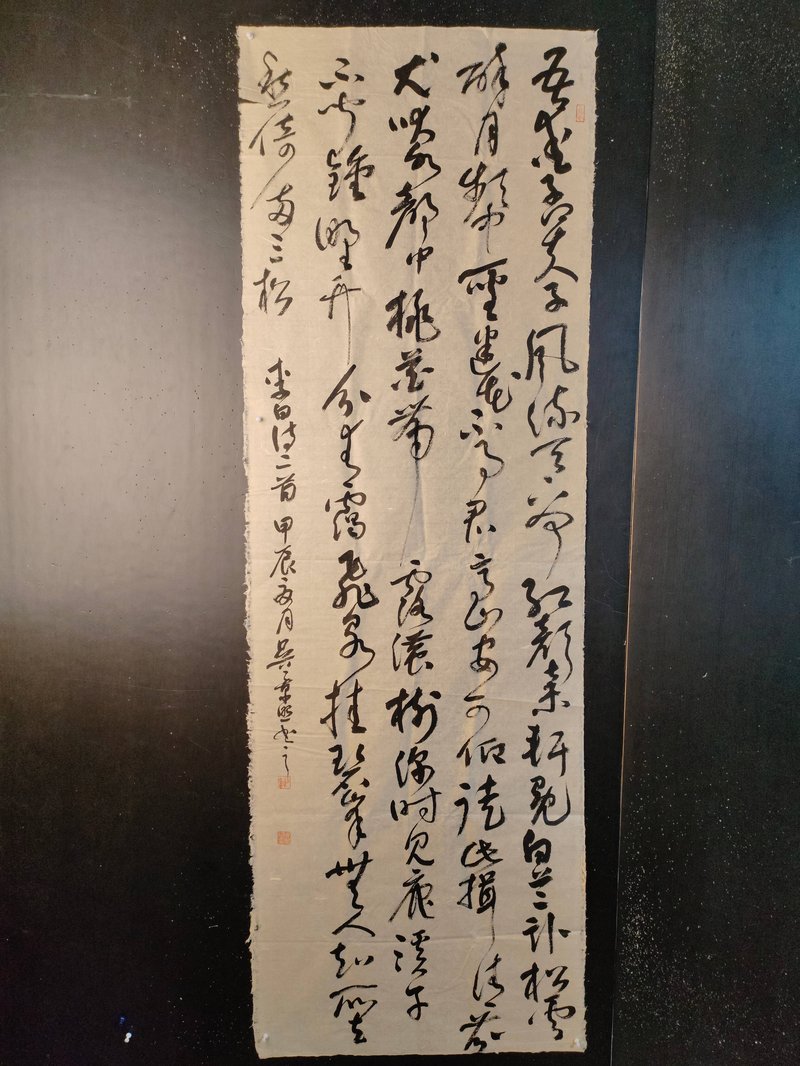 吾愛孟夫子風流天下聞紅顏棄軒冕白首臥松雲
醉月頻中聖迷花不事君高山安可仰徒此揖清芬
犬吠水聲中桃花帶露濃樹深時見鹿溪午
不聞鐘野竹分青靄飛泉挂碧峯無人知所去
愁倚兩三松
李白詩二首甲辰夏月吳書之